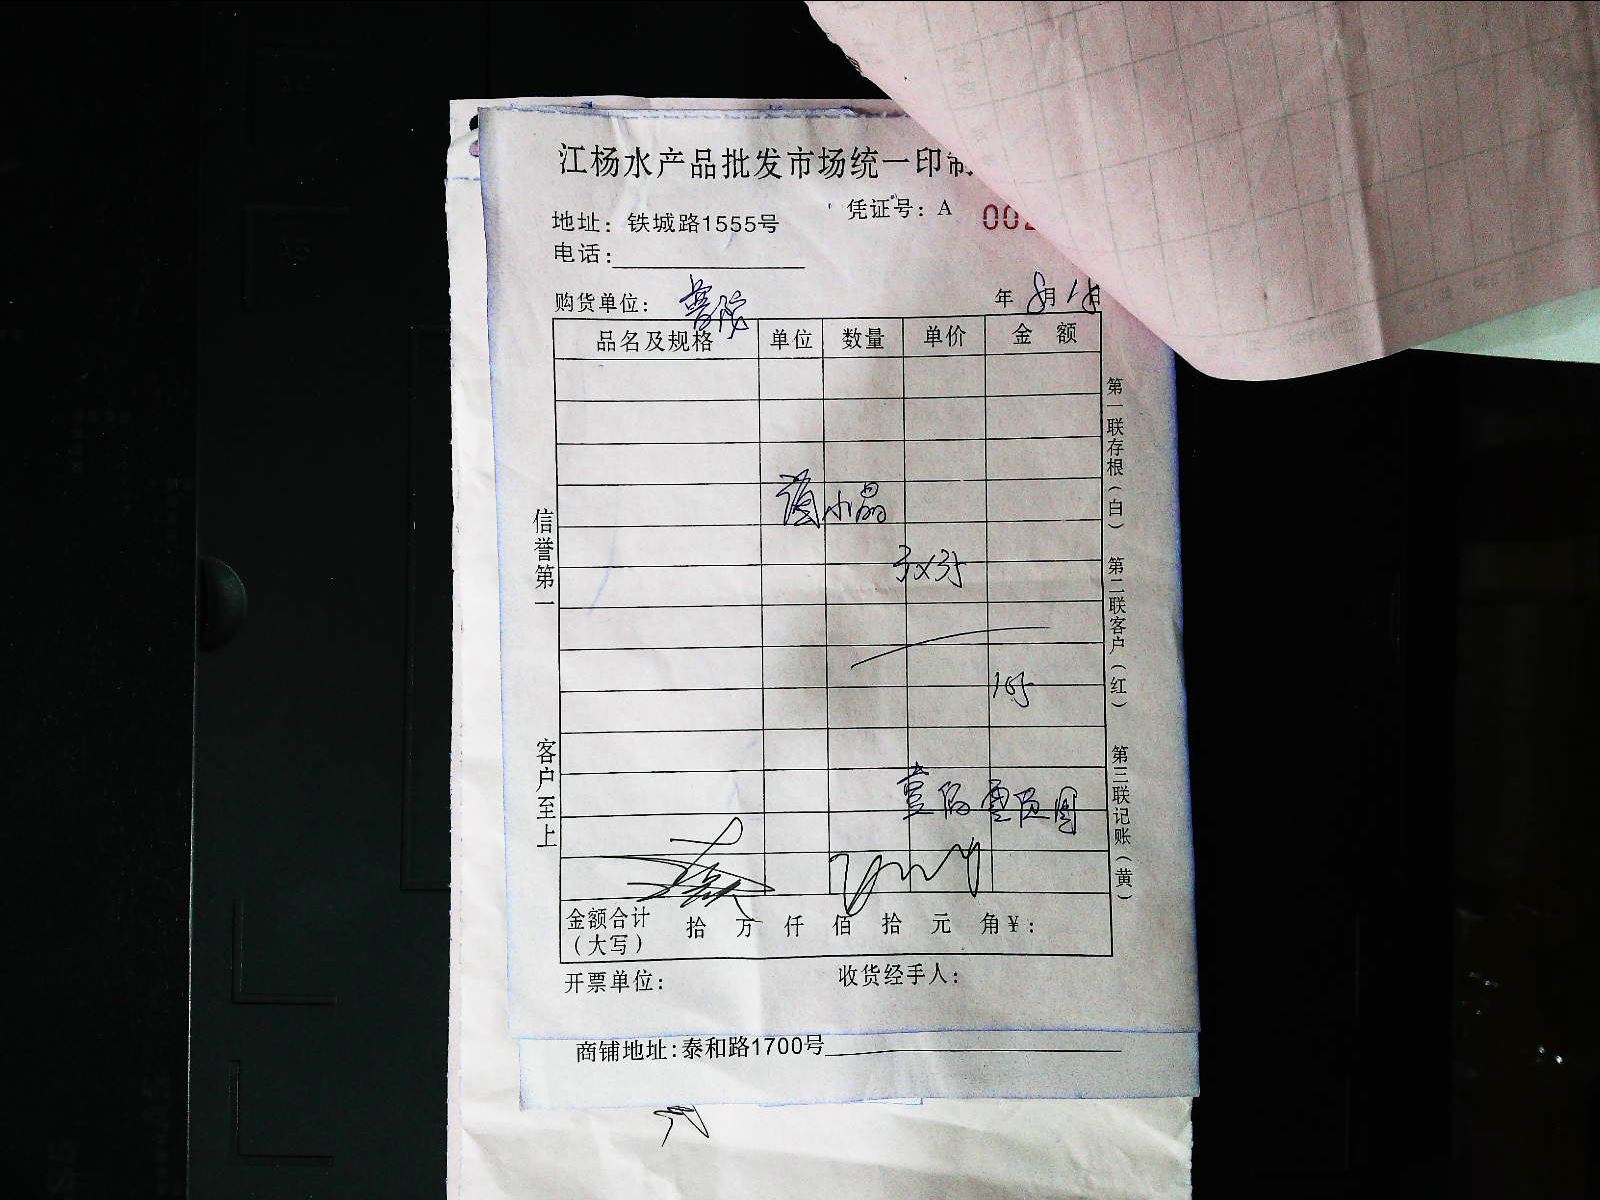 江杨水产品批发市场统一印制
凭证号：A 002
地址：铁城路1555号
电话：
购货单位：普陀 年 8月18日
品名及规格 单位 数量 单价 金额
小晶
壹佰零伍圆
金额合计（大写） 拾 万 仟 佰 拾 元 角 ¥：
开票单位： 收货经手人：
信誉第一
客户至上
第一联存根（白）
第二联客户（红）
第三联记账（黄）
商铺地址:泰和路1700号